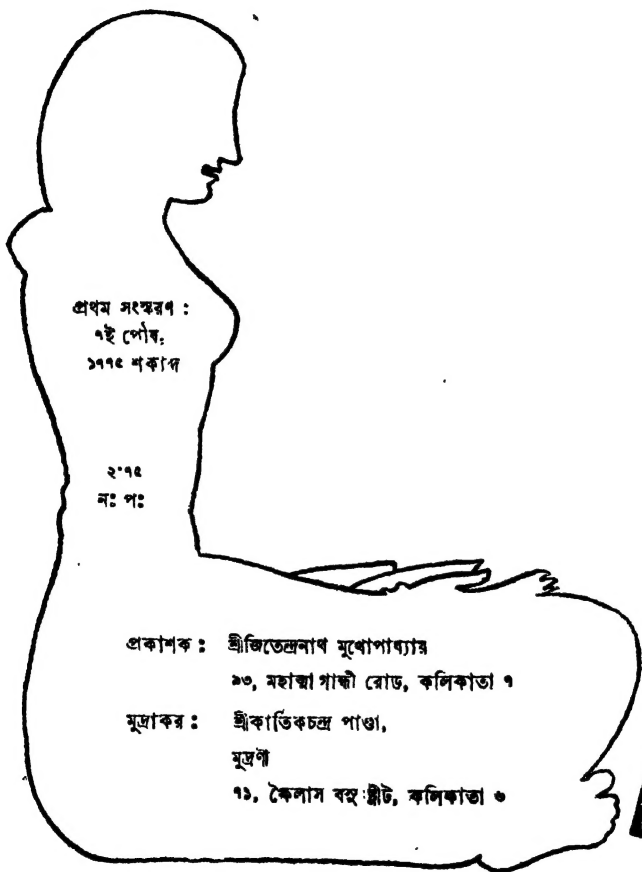 প্রথম সংস্করণ :
৭ই পৌষ,
১৭৭৫ শকাব্দ
২·৭৫
নঃ পঃ
প্রকাশক : শ্রীজিতেন্দ্রনাথ মুখোপাধ্যায়
৯৩, মহাত্মা গান্ধী রোড, কলিকাতা ৭
মুদ্রাকর : শ্রীকার্তিকচন্দ্র পাণ্ডা,
মুদ্রণী
৭১, কৈলাস বসু স্ট্রীট, কলিকাতা ৬